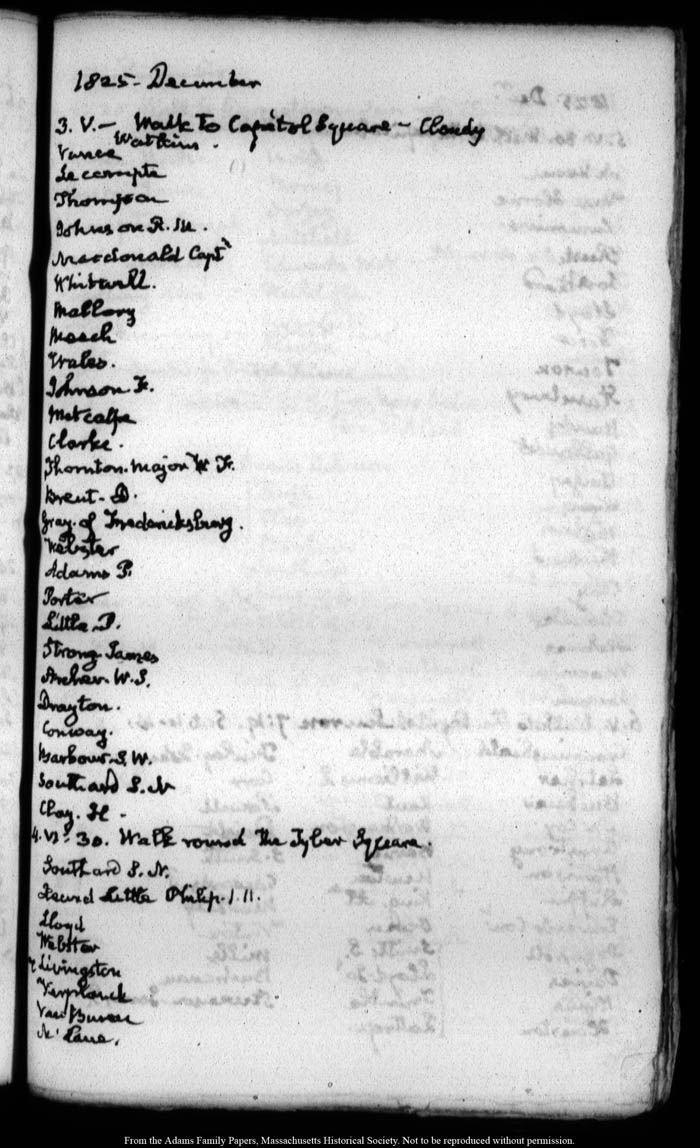 1825. December
3. V.— Walk to Capitol Square — Cloudy
Watkins.
Vance
Lecompte
Thompson
Johnson R. M.
Macdonald Captn
Whitwell.
Mallory
Meech
Wales.
Johnson F.
Metcalfe
Clarke.
Thornton. Major W F.
Brent. D.
Gray. of Fredericksburg.
Webster
Adams P.
Porter
Little P.
Strong James
Archer W. S.
Drayton.
Conway.
Barbour. J. W.
Southard S. N
Clay. H.
4. VI: 30. Walk round the Tyber Square.
Southard S. N.
Little Philip. 1. 11.
Lloyd
Webster
Livingston
Verplanck
Van Buren
McLane.
From the Adams Family Papers, Massachusetts Historical Society. Not to be reproduced without permission.